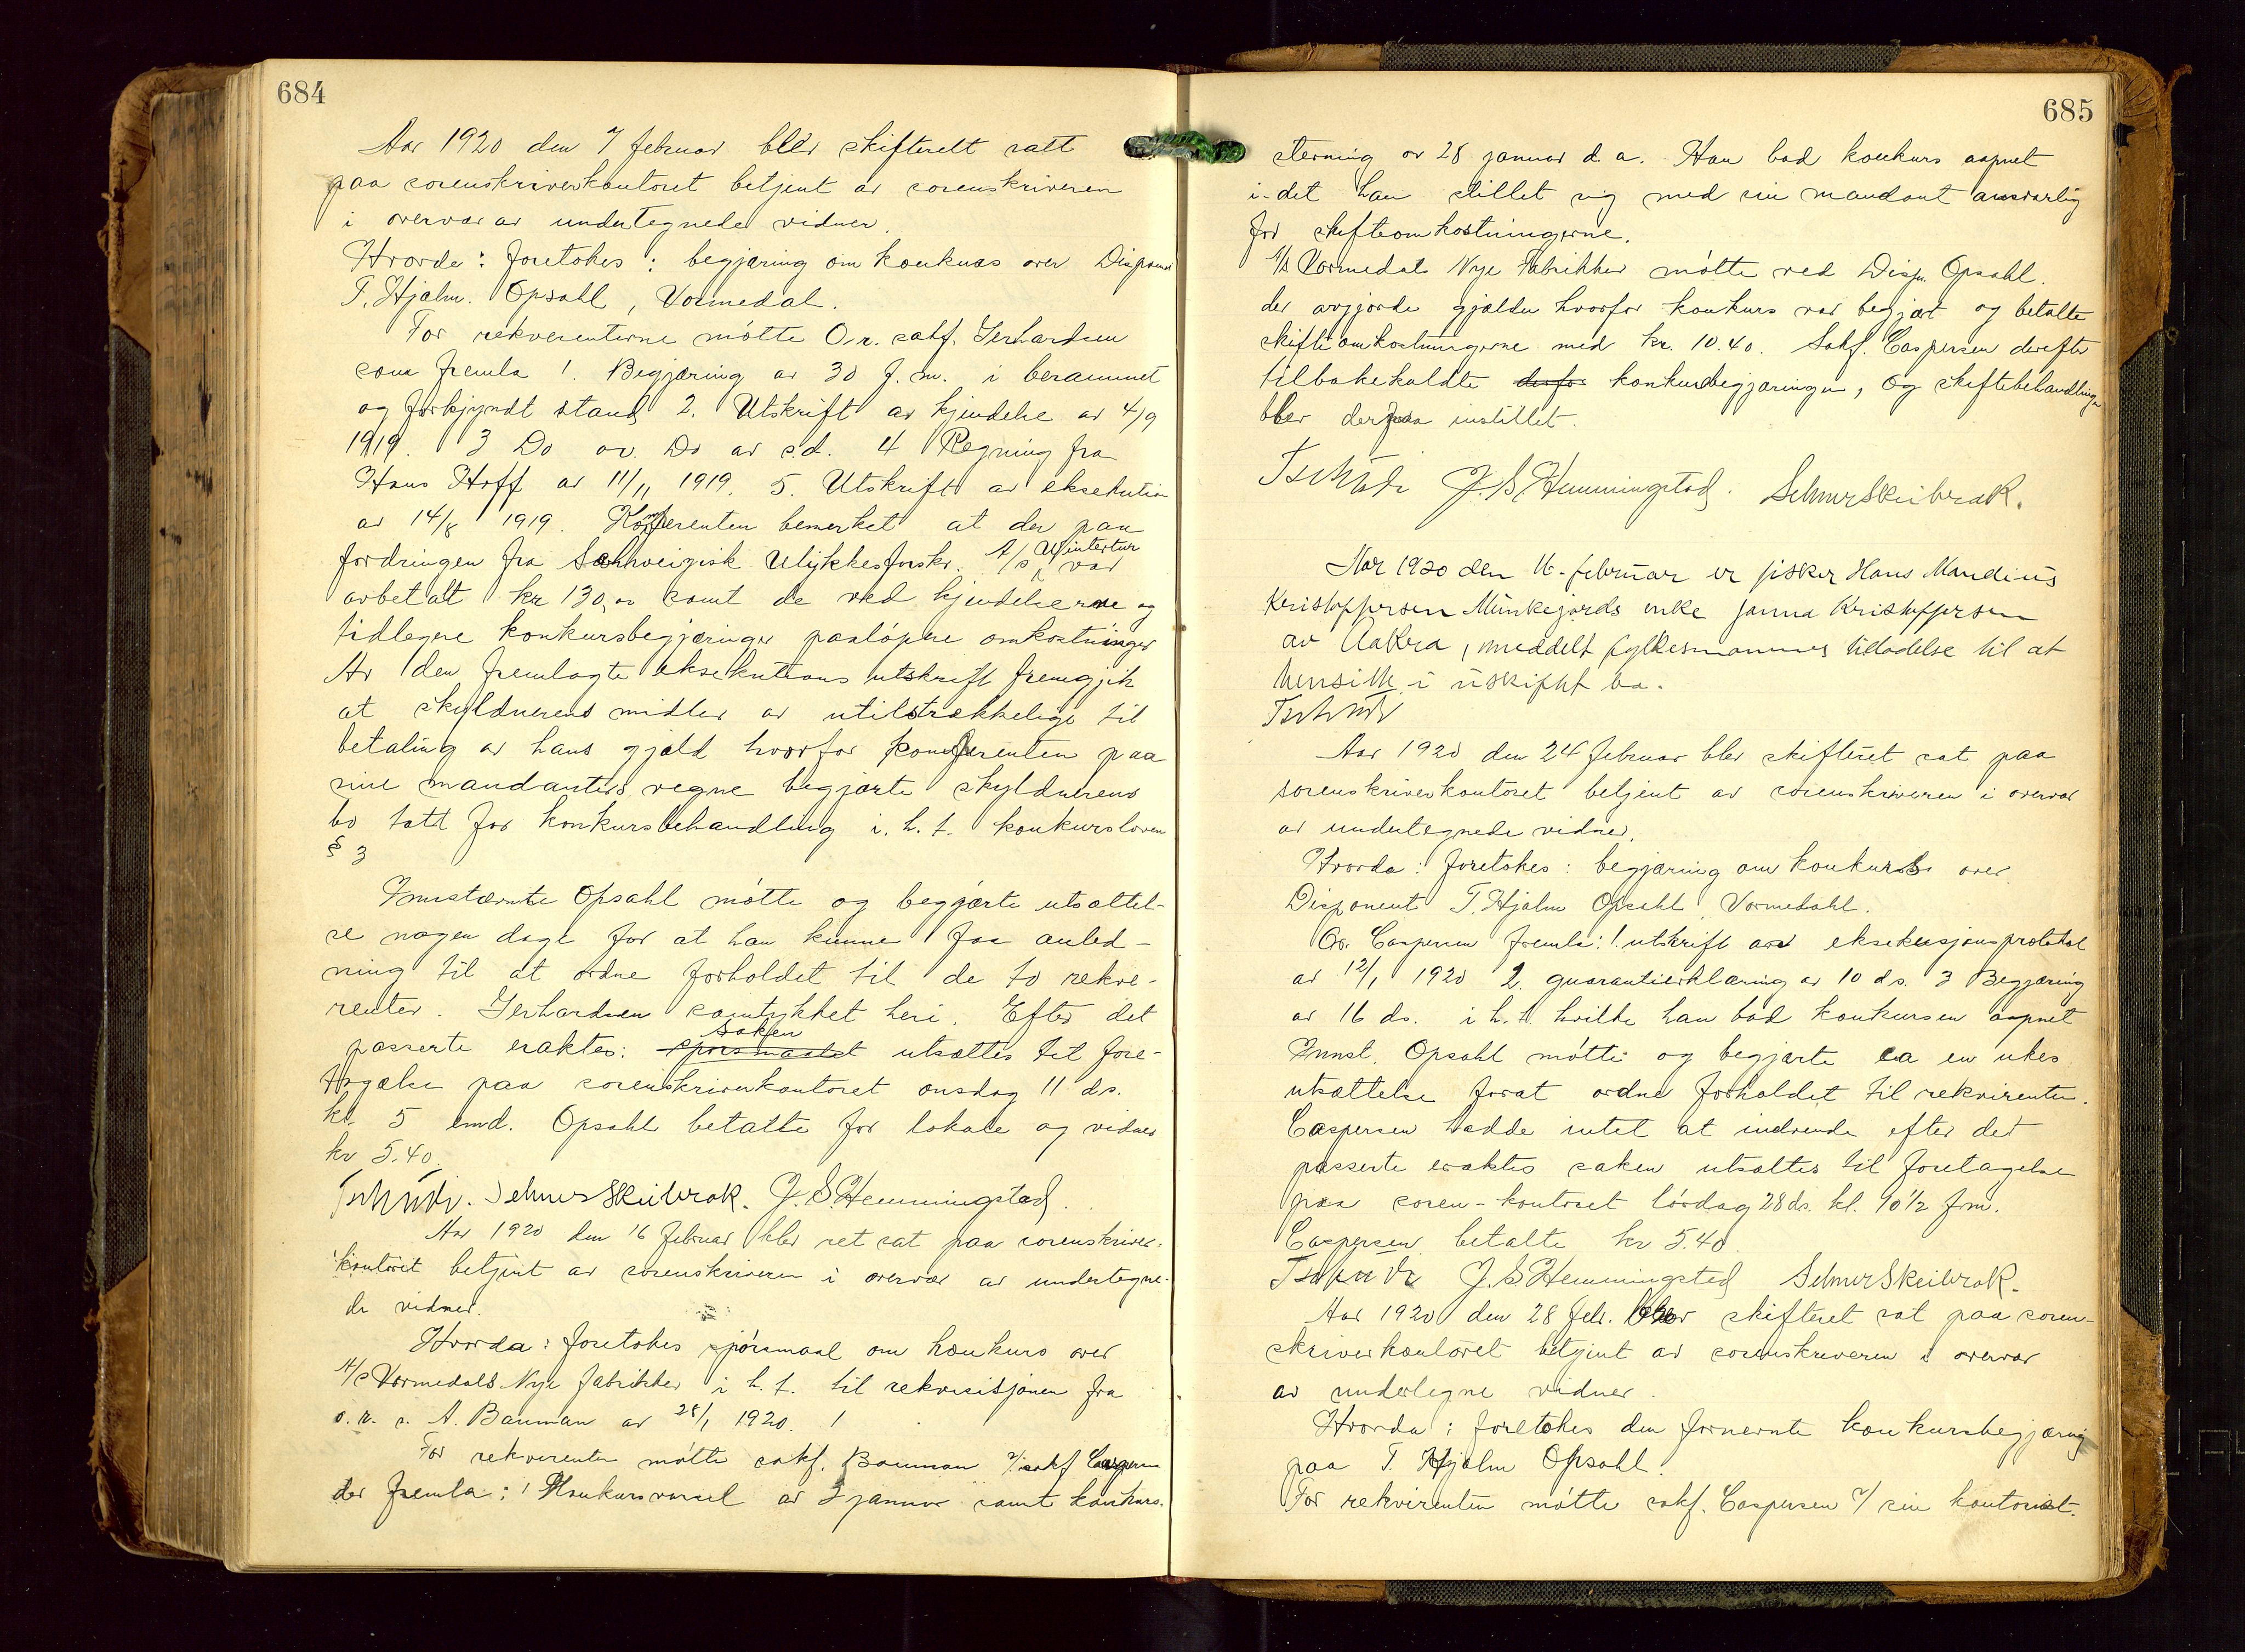 684
Aar 1920 den 7 februar blev skifterett satt
paa sorenskriverkontoret betjent av sorenskriveren
i overvær av undertegnede vidner.
Hvorda: foretokes: begjæring om konkurs over Dispone
T. Hjalm. Opsahl, Vormedal.
For rekverenterne møtte O.r. sakf. Gerhardsen
som fremla 1. Begjæring av 30 f. m. i berammet
og forkyndt stand 2. Utskrift av kjendelse av 4/9
1919. 3 Do av. Do av s.d. 4 Regning fra
Hans Hoff av 11/11 1919. 5. Utskrift av eksekution
av 14/8 1919. Komperenten bemerket at der paa
fordringen fra Schweizisk Ulykkesforsk. A/s Wintertur var
avbetalt kr 130,00 samt de ved kjendelserne og
tidlegere konkursbegjæringer paaløpne omkostninger
Av den fremlagte eksekutions utskrift fremgik
at skyldnerens midler er utilstrækkelige til
betaling av hans gjæld hvorfor komperenten paa
sine mandanters vegne begjærte skyldnerens
bo tatt for konkursbehandling i. h. t. konkursloven
§ 3
Innstævnte Opsahl møtte og begjærte utsættel-
se nogen dage for at han kunne faa anled-
ning til at ordne forholdet til de to rekve-
renter. Gerhardsen samtykket heri. Efter det
passerte eraktes: spørsmaalet saken utsættes til fore-
tagelse paa sorenskriverkontoret onsdag 11 ds.
kl. 5 emd. Opsahl betalte for lokale og vidner
kr 5.40.
Tschudi. Selmer Skeibrok. J. S. Hemmingstad.
Aar 1920 den 16 februar blev ret sat paa sorenskriver-
kontoret betjent av sorenskriveren i overvær av undertegne-
de vidner.
Hvorda: foretokes spørsmaal om konkurs over
A/s Vormedals Nye fabrikker i h. t. til rekvisisjonen fra
o. r. s. A. Bauman av 28/1 1920. 1
For rekverenten møtte sakf. Bauman v/ sakf Caspersen
der fremla: 1 Konkursvarsel av 2 januar samt konkurs-
685
stevning av 28 januar d. a. Han bad konkurs aapnet
i-det han stillet sig med sin mandant ansvarlig
for skifteomkostningerne.
A/s Vormedals Nye Fabrikker møtte ved Disp. Opsahl.
der avgjorde gjælden hvorfor konkurs var begjært og betalte
skifteomkostningerne med kr. 10.40. Sakf. Caspersen derefter
tilbakekaldte derfor konkursbegjæringen, og skiftebehandlingen
blev derpaa instillet.
Tschudi J. S. Hemmingstad. Selmer Skeibrok.
Aar 1920 den 16. februar er fisker Hans Mandius
Kristoffersen Munkejords enke Janna Kristoffersen
av Aakra, meddelt fylkesmannens tilladelse til at
hensitte i uskiftet bo.
Tschudi
Aar 1920 den 24 februar blev skifteret sat paa
sorenskriverkontoret betjent av sorenskriveren i overvær
av undertegnede vidner.
Hvorda: foretokes: begjæring om konkurs over
Disponent T. Hjalm Opsahl, Vormedahl.
Or. Caspersen fremla: 1 utskrift av eksekusjonsprotokol
av 12/1 1920 2. guarantierklæring av 10 ds. 3 Begjæring
av 16 ds. i h. t. hvilke han bad konkursen aapnet
Innst. Opsahl møtte og begjærte ca en ukes
utsættelse forat ordne forholdet til rekvirenten.
Caspersen hadde intet at indvende efter det
passerte eraktes saken utsættes til foretagelse
paa soren-kontoret lørdag 28 ds. kl. 10 1/2 fm.
Caspersen betalte kr 5.40
Tschudi J. S. Hemmingstad Selmer Skeibrok.
Aar 1920 den 28 febr. blev skifteret sat paa soren-
skriverkontoret betjent av sorenskriveren i overvær
av undertegne vidner.
Hvorda: foretokes den fornevnte konkursbegjæring
paa T. Hjalm Opsahl.
For rekvirenten møtte sakf. Caspersen v/ sin kontorist.